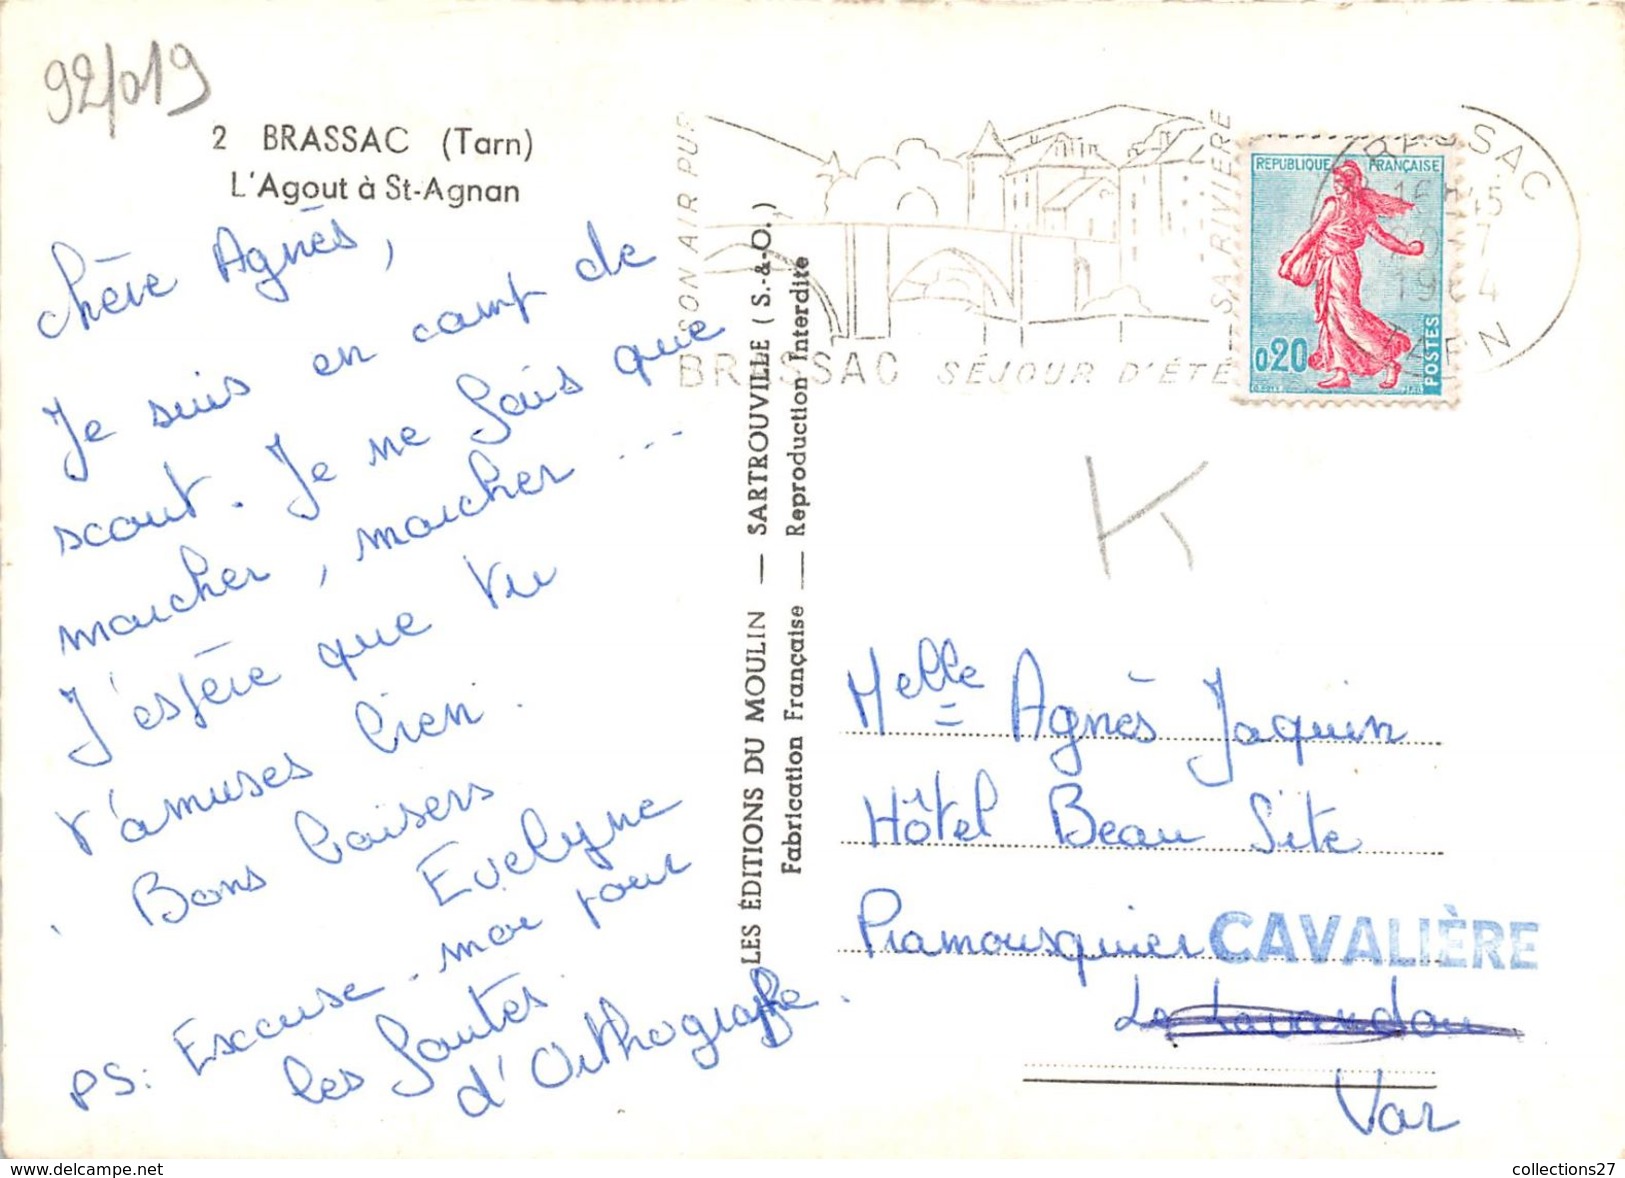 92/019
2 BRASSAC (Tarn)
L'Agout à St-Agnan
Chère Agnès,
Je suis en camp de
scout. Je ne fais que
marcher, marcher ...
J'espère que tu
t'amuses bien.
Bons baisers
Evelyne
PS: Excuse-moi pour
les fautes
d'Orthographe.
LES ÉDITIONS DU MOULIN — SARTROUVILLE (S.-&-O.)
Fabrication Française — Reproduction Interdite
SON AIR PUR
SA RIVIERE
BRASSAC SÉJOUR D'ÉTÉ
BRASSAC
16H45
7
1964
TARN
REPUBLIQUE FRANÇAISE
0,20
POSTES
K
Melle Agnès Jaquin
Hôtel Beau Site
Pramousquier CAVALIÈRE
Le Lavandou
Var
collections27